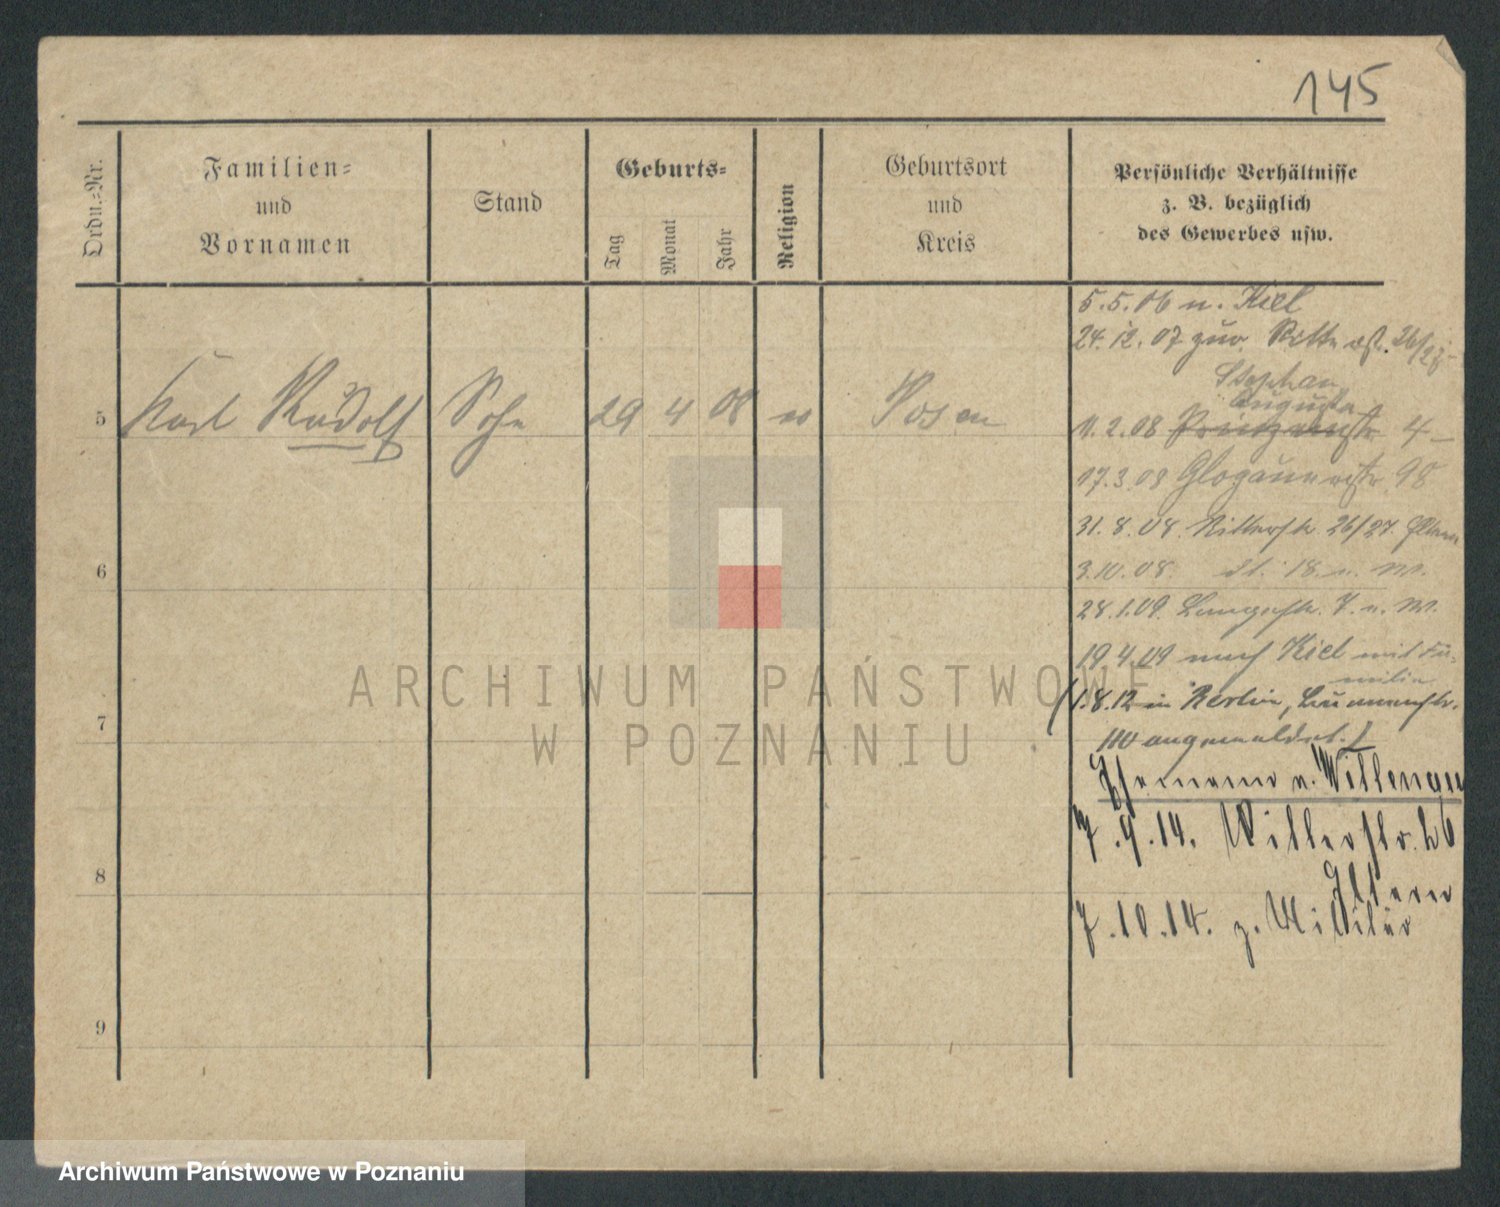 145
Ordn.-Nr.
Familien-
und
Vornamen
Stand
Geburts-
Tag
Monat
Jahr
Religion
Geburtsort
und
Kreis
Persönliche Verhältnisse
z. B. bezüglich
des Gewerbes usw.
5.5.06 n. Kiel
24.12.07 zur. Ritterstr. 26/27
Stephan
Augusta
5 Karl Rudolf Sohn 29 4 08 Posen
11.2.08 4
17.3.08 Glogauerstr 98
31.8.08. Ritterstr. 26/27. Eltern
6
3.10.08. 18. u. M.
28.1.09. Langestr. 7. u. M.
19.4.09 nach Kiel mit Fa-
milie
7
(1.8.12 in Berlin,
110 angemeldet.)
7.9.14. Ritterstr. 26
8
Eltern
7.10.14. z. Militär
9
ARCHIWUM PAŃSTWOWE
W POZNANIU
Archiwum Państwowe w Poznaniu